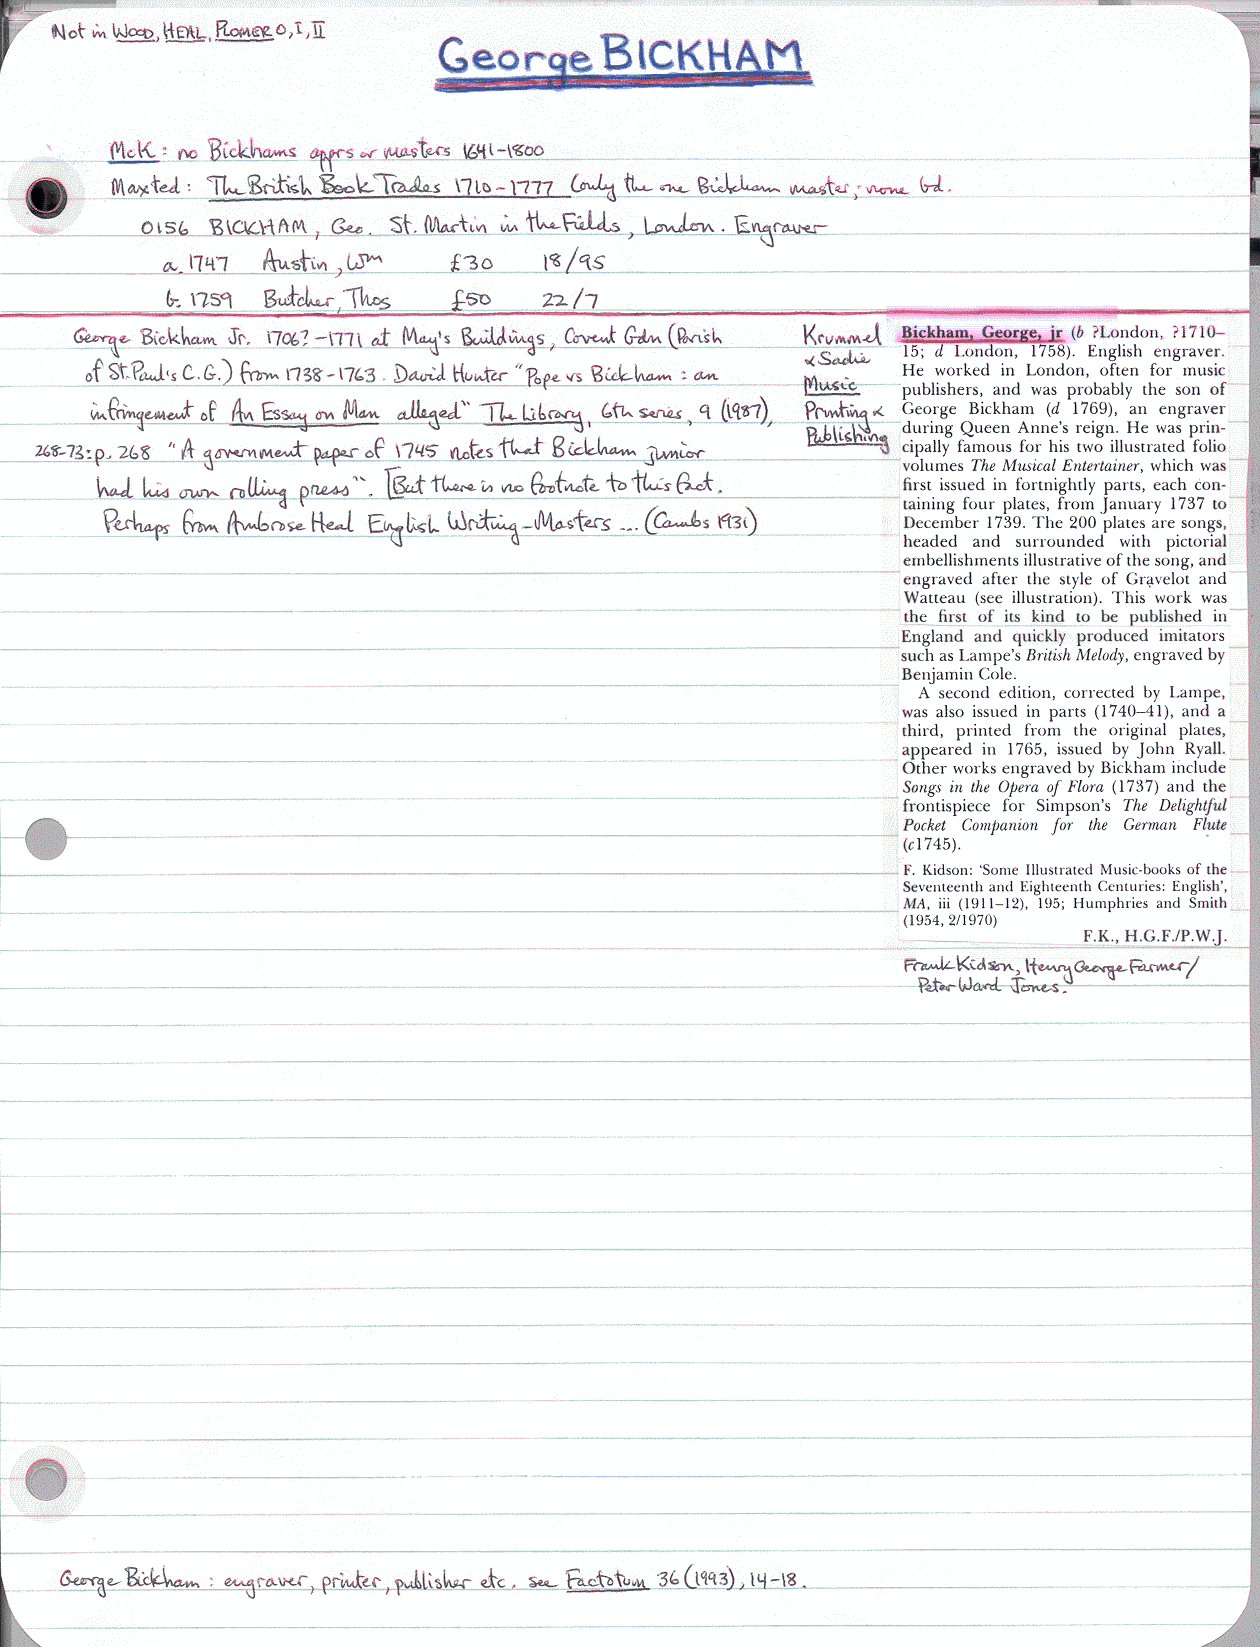 Not in WOOD, HEAL, PLOMER O, I, II
George BICKHAM
McK: no Bickhams apprs or masters 1641-1800
Maxted: The British Book Trades 1710-1777 (only the one Bickham master; none bd.
0156 BICKHAM, Geo. St. Martin in the Fields, London. Engraver
a. 1747 Austin, Wm £30 18/95
b. 1759 Butcher, Thos £50 22/7
George Bickham Jr. 1706?-1771 at May's Buildings, Covent Gdn (Parish
of St. Paul's C.G.) from 1738-1763. David Hunter "Pope vs Bickham: an
infringement of An Essay on Man alleged" The Library, 6th series, 9 (1987),
268-73: p. 268 "A government paper of 1745 notes that Bickham junior
had his own rolling press". [But there is no footnote to this fact.
Perhaps from Ambrose Heal English Writing-Masters ... (Cambs 1931)
Krummel
& Sadie
Music
Printing &
Publishing
Bickham, George, jr (b ?London, ?1710–
15; d London, 1758). English engraver.
He worked in London, often for music
publishers, and was probably the son of
George Bickham (d 1769), an engraver
during Queen Anne's reign. He was prin-
cipally famous for his two illustrated folio
volumes The Musical Entertainer, which was
first issued in fortnightly parts, each con-
taining four plates, from January 1737 to
December 1739. The 200 plates are songs,
headed and surrounded with pictorial
embellishments illustrative of the song, and
engraved after the style of Gravelot and
Watteau (see illustration). This work was
the first of its kind to be published in
England and quickly produced imitators
such as Lampe's British Melody, engraved by
Benjamin Cole.
A second edition, corrected by Lampe,
was also issued in parts (1740–41), and a
third, printed from the original plates,
appeared in 1765, issued by John Ryall.
Other works engraved by Bickham include
Songs in the Opera of Flora (1737) and the
frontispiece for Simpson's The Delightful
Pocket Companion for the German Flute
(c1745).
F. Kidson: 'Some Illustrated Music-books of the
Seventeenth and Eighteenth Centuries: English',
MA, iii (1911–12), 195; Humphries and Smith
(1954, 2/1970)
F.K., H.G.F./P.W.J.
Frank Kidson, Henry George Farmer/
Peter Ward Jones.
George Bickham: engraver, printer, publisher etc. see Factotum 36 (1993), 14-18.